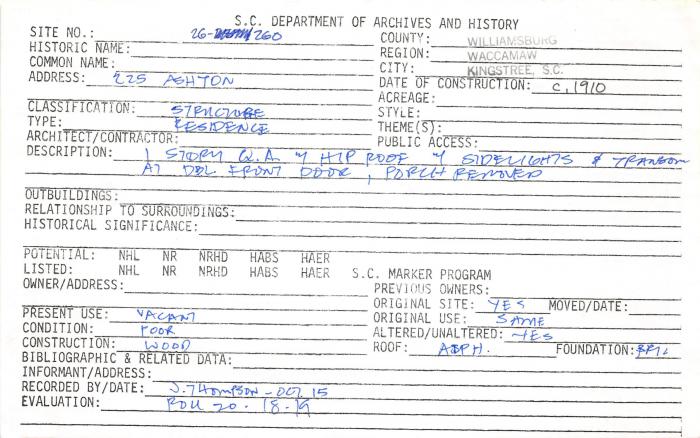 S.C. DEPARTMENT OF ARCHIVES AND HISTORY
SITE NO.: 26- 260 COUNTY: WILLIAMSBURG
HISTORIC NAME: REGION: WACCAMAW
COMMON NAME: CITY: KINGSTREE, S.C.
ADDRESS: 225 ASHTON DATE OF CONSTRUCTION: c. 1910
ACREAGE:
CLASSIFICATION: STRUCTURE STYLE:
TYPE: RESIDENCE THEME(S):
ARCHITECT/CONTRACTOR: PUBLIC ACCESS:
DESCRIPTION: 1 STORY Q.A. w/ HIP ROOF w/ SIDELIGHTS & TRANSOM
AT DBL FRONT DOOR, PORCH REMOVED
OUTBUILDINGS:
RELATIONSHIP TO SURROUNDINGS:
HISTORICAL SIGNIFICANCE:
POTENTIAL: NHL NR NRHD HABS HAER
LISTED: NHL NR NRHD HABS HAER S.C. MARKER PROGRAM
OWNER/ADDRESS: PREVIOUS OWNERS:
ORIGINAL SITE: YES MOVED/DATE:
PRESENT USE: VACANT ORIGINAL USE: SAME
CONDITION: POOR ALTERED/UNALTERED: YES
CONSTRUCTION: WOOD ROOF: ASPH. FOUNDATION: BRK
BIBLIOGRAPHIC & RELATED DATA:
INFORMANT/ADDRESS:
RECORDED BY/DATE: J. THOMPSON - OCT. 15
EVALUATION: ROLL 20 - 18-19